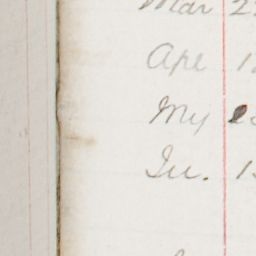 Mar 2
Ape 1
My
Iu. 1